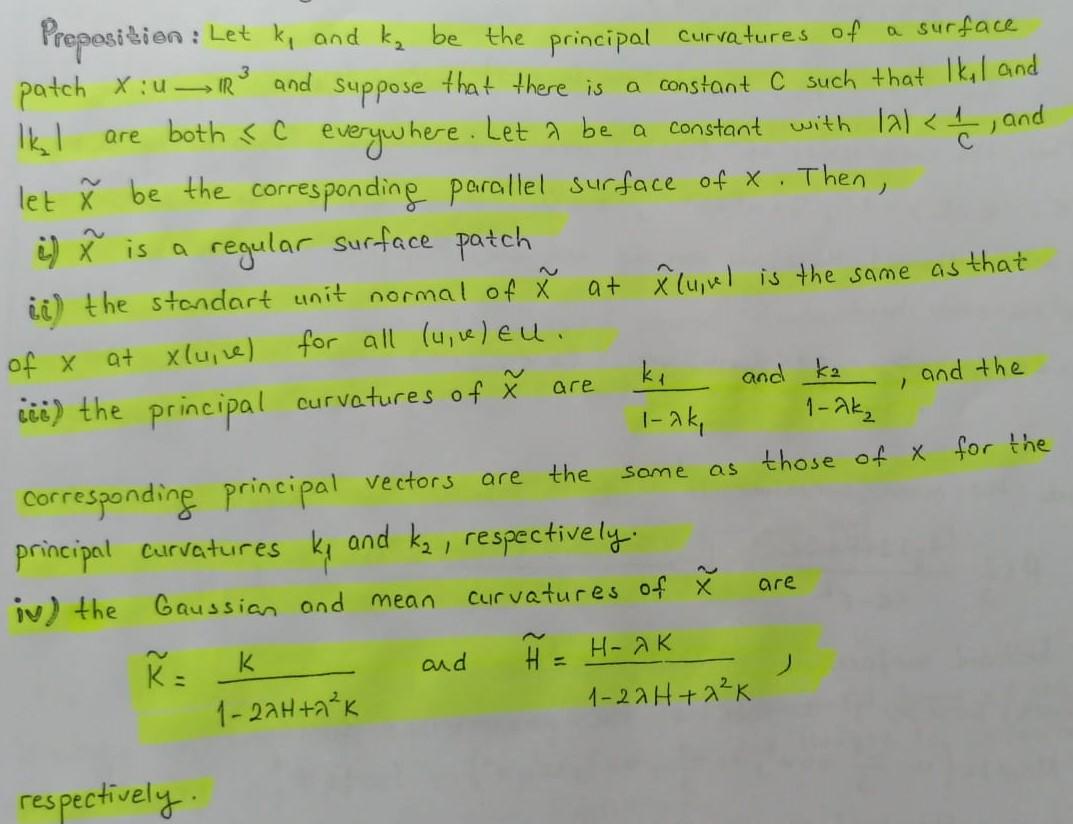 Proposition : Let k₁ and k₂ be the principal curvatures of a surface
patch x : u → ℝ³ and suppose that there is a constant C such that |k₁| and
|k₂| are both ≤ C everywhere. Let λ be a constant with |λ| < 1/C , and
let x̃ be the corresponding parallel surface of x . Then ,
i) x̃ is a regular surface patch
ii) the standart unit normal of x̃ at x̃(u,v) is the same as that
of x at x(u,v) for all (u,v) ∈ u .
iii) the principal curvatures of x̃ are k₁/(1-λk₁) and k₂/(1-λk₂) , and the
corresponding principal vectors are the same as those of x for the
principal curvatures k₁ and k₂ , respectively.
iv) the Gaussian and mean curvatures of x̃ are
K̃ = K/(1-2λH+λ²K) and H̃ = (H-λK)/(1-2λH+λ²K) ,
respectively.